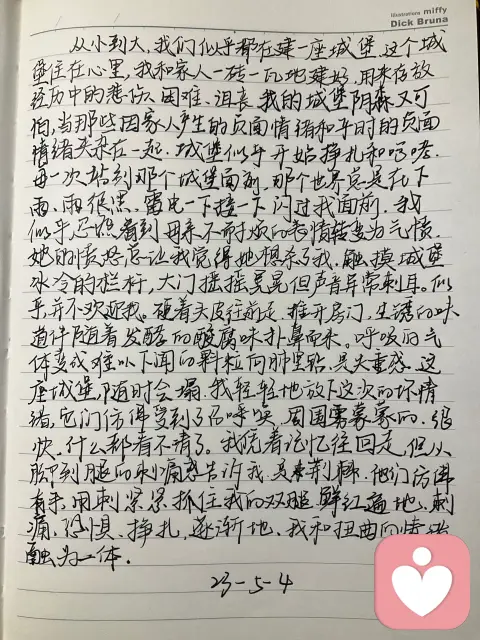 illustrations miffy
Dick Bruna
从小到大,我们似乎都在建一座城堡,这个城
堡住在心里,我和家人一砖一瓦地建好,用来存放
经历中的悲伤、困难、沮丧,我的城堡阴森又可
怕,当那些因家人产生的负面情绪和平时的负面
情绪夹杂在一起,城堡似乎开始挣扎和咆哮,
每一次站到那个城堡面前,那个世界总是在下
雨,雨很黑,雷电一下接一下闪过我面前,我
似乎总看到母亲不耐烦的表情转变为气愤,
她的愤怒总让我觉得她想杀了我,触摸城堡
冰冷的栏杆,大门摇摇晃晃但声音异常刺耳。似
乎并不欢迎我。硬着头皮往前走,推开房门,生锈的味
道伴随着发酵的酸腐味扑鼻而来。呼吸的气
体变成难以下闻的颗粒向肺里钻,失重感,这
座城堡,随时会塌,我轻轻地放下这次的坏情
绪,它们仿佛受到了召呼唤,周围雾蒙蒙的,很
快,什么都看不清了。我凭着记忆往回走,但从
脚到腿的刺痛感告诉我,是荆棘,他们仿佛
有手,用刺紧紧抓住我的双腿,鲜红遍地,刺
痛、恐惧、挣扎,逐渐地,我和扭曲的情绪
融为一体.
23-5-4